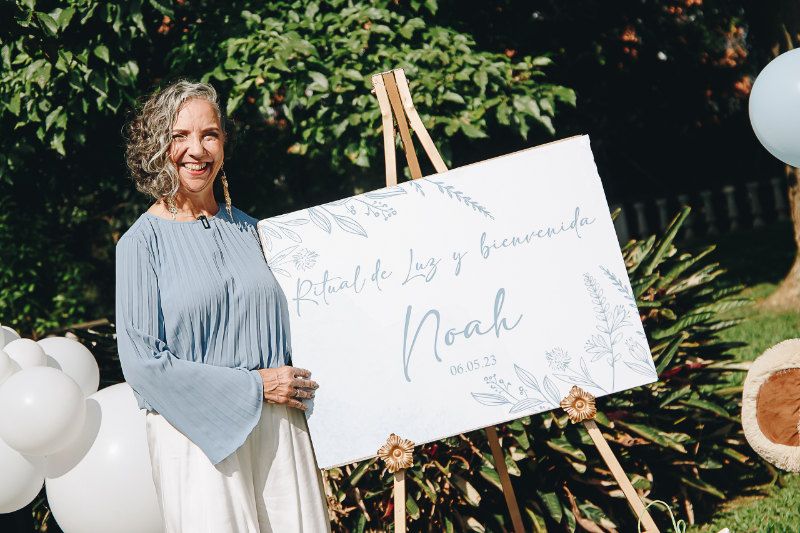 Ritual de Luz y bienvenida
Noah
06.05.23